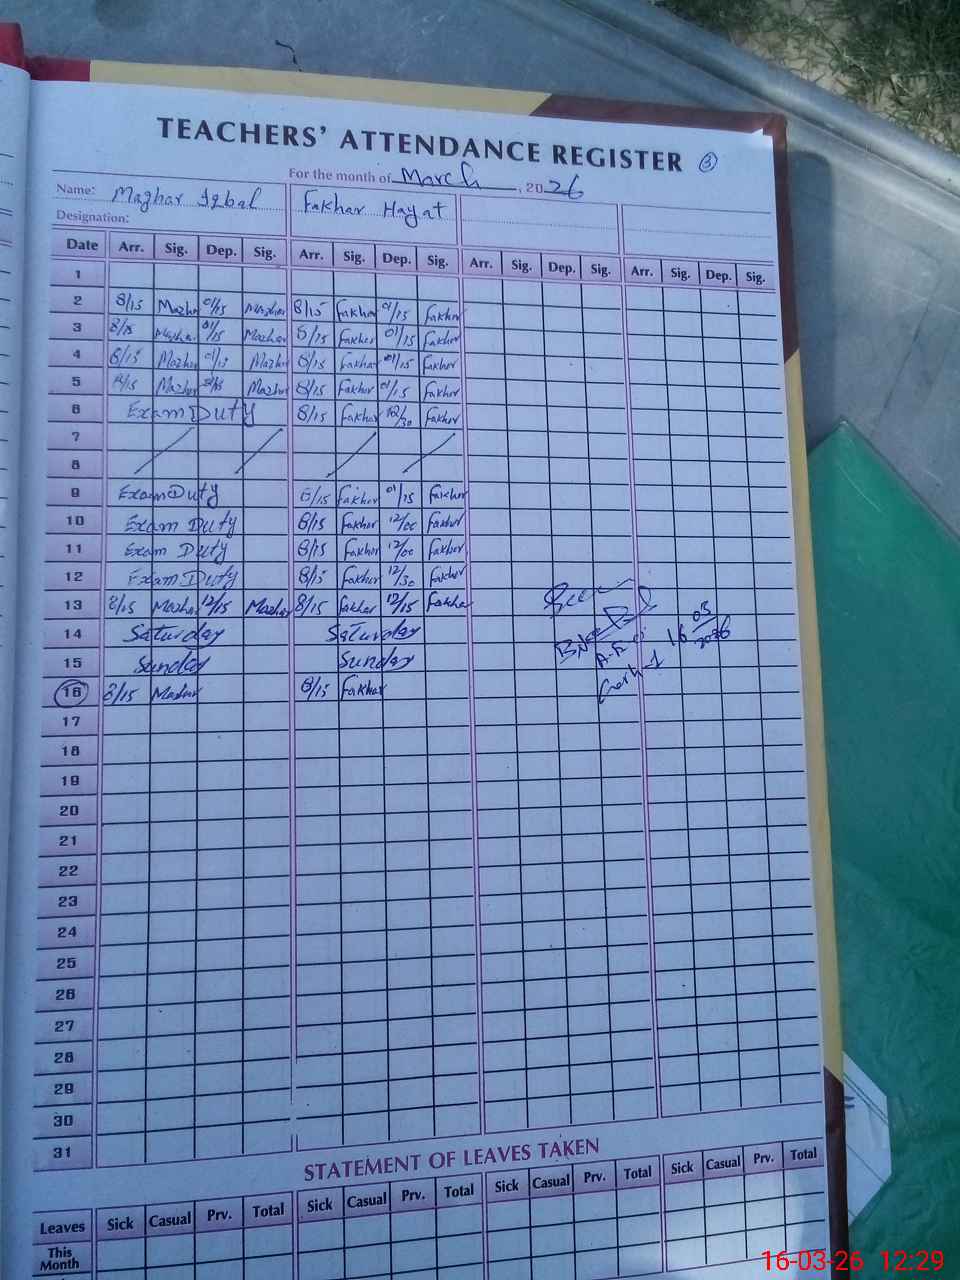 TEACHERS' ATTENDANCE REGISTER 3
For the month of March, 2026
Name: Mazhar Iqbal Fakhar Hayat
Designation:
Date Arr. Sig. Dep. Sig. Arr. Sig. Dep. Sig. Arr. Sig. Dep. Sig. Arr. Sig. Dep. Sig.
1
2 8/15 Mazhar 01/15 Mazhar 8/15 Fakhar 01/15 Fakhar
3 8/15 Mazhar 01/15 Mazhar 8/15 Fakhar 01/15 Fakhar
4 8/15 Mazhar 01/15 Mazhar 8/15 Fakhar 01/15 Fakhar
5 Mazhar Mazhar 8/15 Fakhar 01/15 Fakhar
6 Exam Duty 8/15 Fakhar 12/30 Fakhar
7
8
9 Exam Duty 8/15 Fakhar 01/15 Fakhar
10 Exam Duty 8/15 Fakhar 12/00 Fakhar
11 Exam Duty 8/15 Fakhar 12/00 Fakhar
12 Exam Duty 8/15 Fakhar 12/30 Fakhar
13 8/15 Mazhar 12/15 Mazhar 8/15 Fakhar 12/15 Fakhar
14 Saturday Saturday
15 Sunday Sunday
16 8/15 Mazhar 8/15 Fakhar
16 03/2026
17
18
19
20
21
22
23
24
25
26
27
28
29
30
31
STATEMENT OF LEAVES TAKEN
Leaves Sick Casual Prv. Total Sick Casual Prv. Total Sick Casual Prv. Total Sick Casual Prv. Total
This
Month
16-03-26 12:29